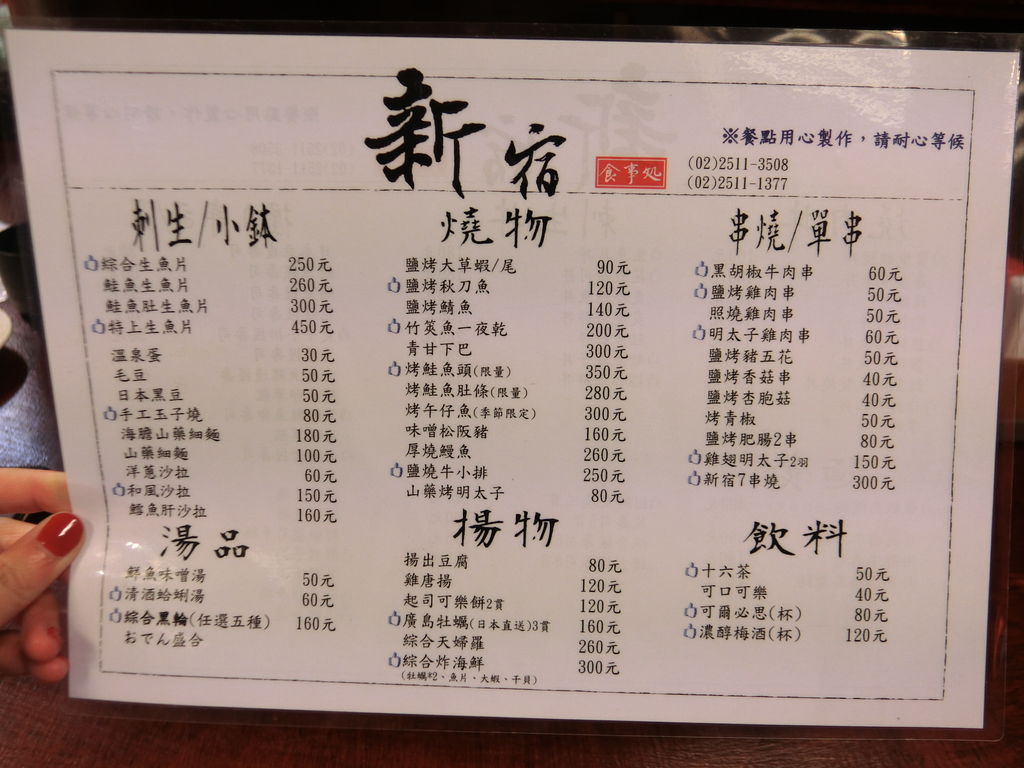 新宿
食事処
※餐點用心製作，請耐心等候
(02)2511-3508
(02)2511-1377
刺生/小鉢
綜合生魚片 250元
鮭魚生魚片 260元
鮭魚肚生魚片 300元
特上生魚片 450元
溫泉蛋 30元
毛豆 50元
日本黑豆 50元
手工玉子燒 80元
海膽山藥細麵 180元
山藥細麵 100元
洋蔥沙拉 60元
和風沙拉 150元
鱈魚肝沙拉 160元
湯品
鮮魚味噌湯 50元
清酒蛤蜊湯 60元
綜合黑輪(任選五種) 160元
おでん盛合
燒物
鹽烤大草蝦/尾 90元
鹽烤秋刀魚 120元
鹽烤鯖魚 140元
竹筴魚一夜乾 200元
青甘下巴 300元
烤鮭魚頭(限量) 350元
烤鮭魚肚條(限量) 280元
烤午仔魚(季節限定) 300元
味噌松阪豬 160元
厚燒鰻魚 260元
鹽燒牛小排 250元
山藥烤明太子 80元
揚物
揚出豆腐 80元
雞唐揚 120元
起司可樂餅2貫 120元
廣島牡蠣(日本直送)3貫 160元
綜合天婦羅 260元
綜合炸海鮮 300元
(牡蠣*2、魚片、大蝦、干貝)
串燒/單串
黑胡椒牛肉串 60元
鹽烤雞肉串 50元
照燒雞肉串 50元
明太子雞肉串 60元
鹽烤豬五花 50元
鹽烤香菇串 40元
鹽烤杏胞菇 40元
烤青椒 50元
鹽烤肥腸2串 80元
雞翅明太子2羽 150元
新宿7串燒 300元
飲料
十六茶 50元
可口可樂 40元
可爾必思(杯) 80元
濃醇梅酒(杯) 120元